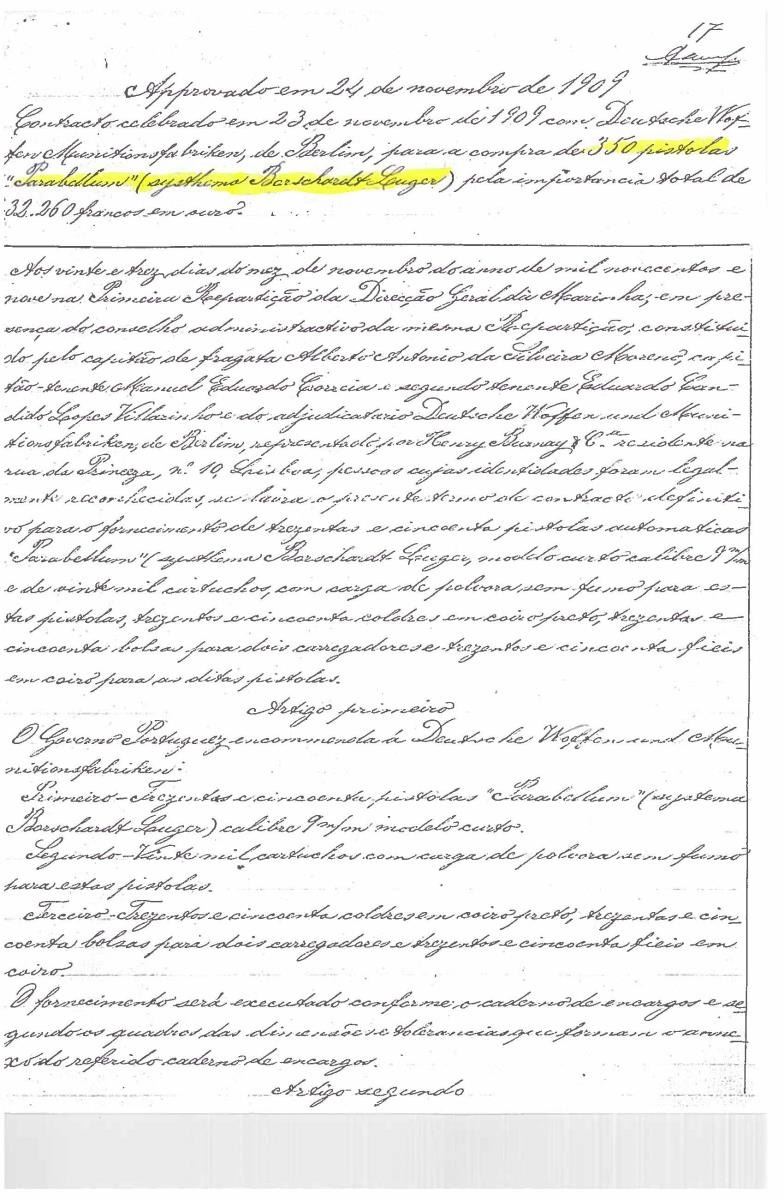 17
Approvado em 24 de novembro de 1909
Contracto celebrado em 23 de novembro de 1909 com Deutsche Waf-
fen Munitionsfabriken, de Berlim, para a compra de 350 pistolas
"Parabellum" (systhema Borschardt-Luger) pela importancia total de
32.260 francos em ouro.
Aos vinte e trez dias do mez de novembro do anno de mil novecentos e
nove na Primeira Repartição da Direcção Geral da Marinha, em pre-
sença do conselho administractivo da mesma Repartição, constitui-
do pelo capitão de fragata Alberto Antonio da Silveira Moreno, capi-
tão-tenente Manuel Eduardo Correia e segundo tenente Eduardo Can-
dido Lopes Villarinho e do adjudicatario Deutsche Waffen und Muni-
tionsfabriken, de Berlim, representado por Henry Burnay & C.ia residente na
rua da Princeza, n.º 10, Lisboa, pessoas cujas identidades foram legal-
mente reconhecidas, se lavra o presente termo de contracto definiti-
vo para o fornecimento de trezentas e cincoenta pistolas automaticas
"Parabellum" (systhema Borschardt Luger, modelo curto calibre 9 m/m
e de vinte mil cartuchos, com carga de polvora sem fumo para es-
tas pistolas, trezentos e cincoenta coldres em coiro preto, trezentas e
cincoenta bolsas para dois carregadores e trezentos e cincoenta fieis
em coiro para as ditas pistolas.
Artigo primeiro
O Governo Portuguez encommenda á Deutsche Waffen und Mu-
nitionsfabriken:
Primeiro-Trezentas e cincoenta pistolas "Parabellum" (systema
Borschardt-Luger) calibre 9 m/m modelo curto.
Segundo-Vinte mil cartuchos com carga de polvora sem fumo
para estas pistolas.
Terceiro-Trezentos e cincoenta coldres em coiro preto, trezentas e cin-
coenta bolsas para dois carregadores e trezentos e cincoenta fieis em
coiro.
O fornecimento será executado conforme o caderno de encargos e se-
gundo os quadros das dimensões e tolerancias que formam o anne-
xo do referido caderno de encargos.
Artigo segundo